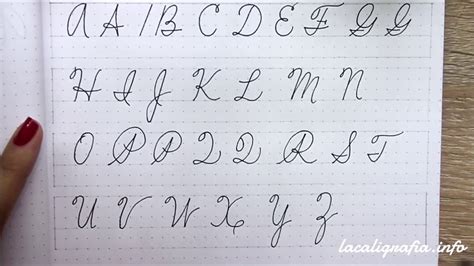 A A B C D E F G G
H I J K L M N
O P P Q Q R S T
U V W X Y Z
lacaligrafia.info